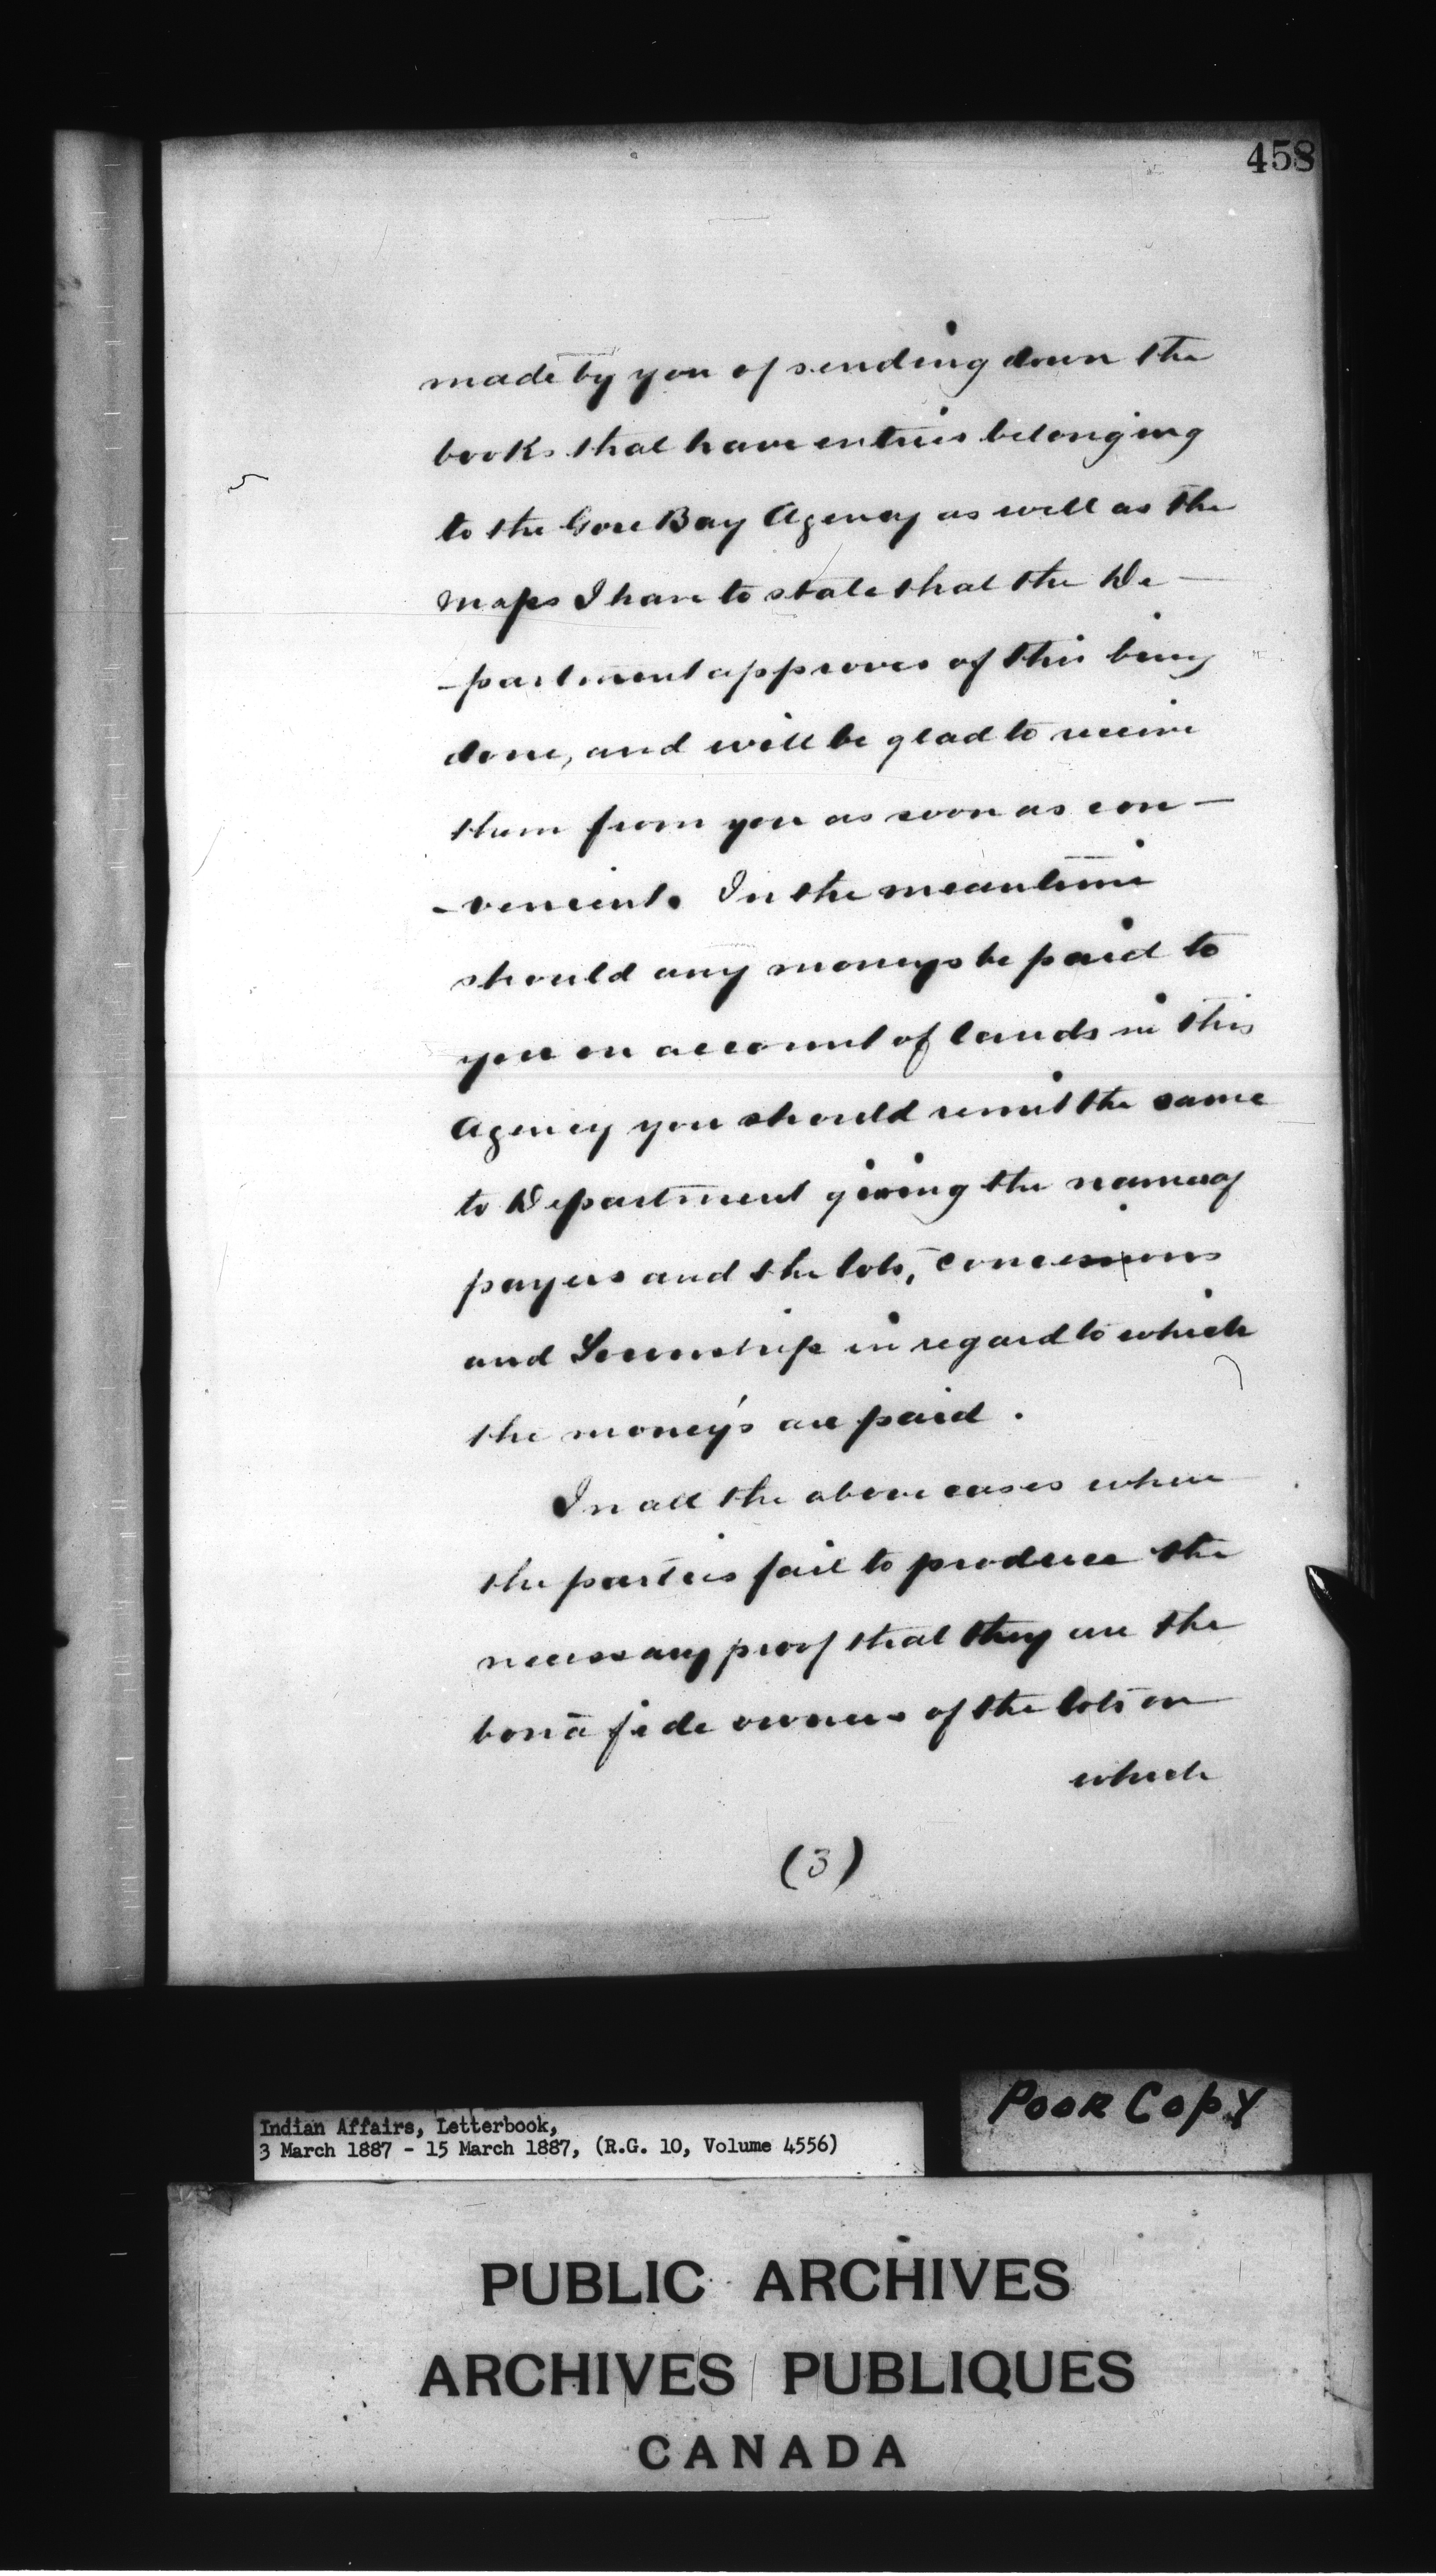 458
made by you of sending down the
books that have entries belonging
to the Gore Bay Agency as well as the
maps I have to state that the De-
-partment approves of this being
done, and will be glad to receive
them from you as soon as con-
-venient. In the meantime
should any moneys be paid to
you on account of lands in this
Agency you should remit the same
to Department giving the names of
payers and the lots, concessions
and Township in regard to which
the money's are paid.
In all the above cases where
the parties fail to produce the
necessary proof that they are the
bona fide owners of the lots on
which
(3)
Poor Copy
Indian Affairs, Letterbook,
3 March 1887 - 15 March 1887, (R.G. 10, Volume 4556)
PUBLIC ARCHIVES
ARCHIVES PUBLIQUES
CANADA